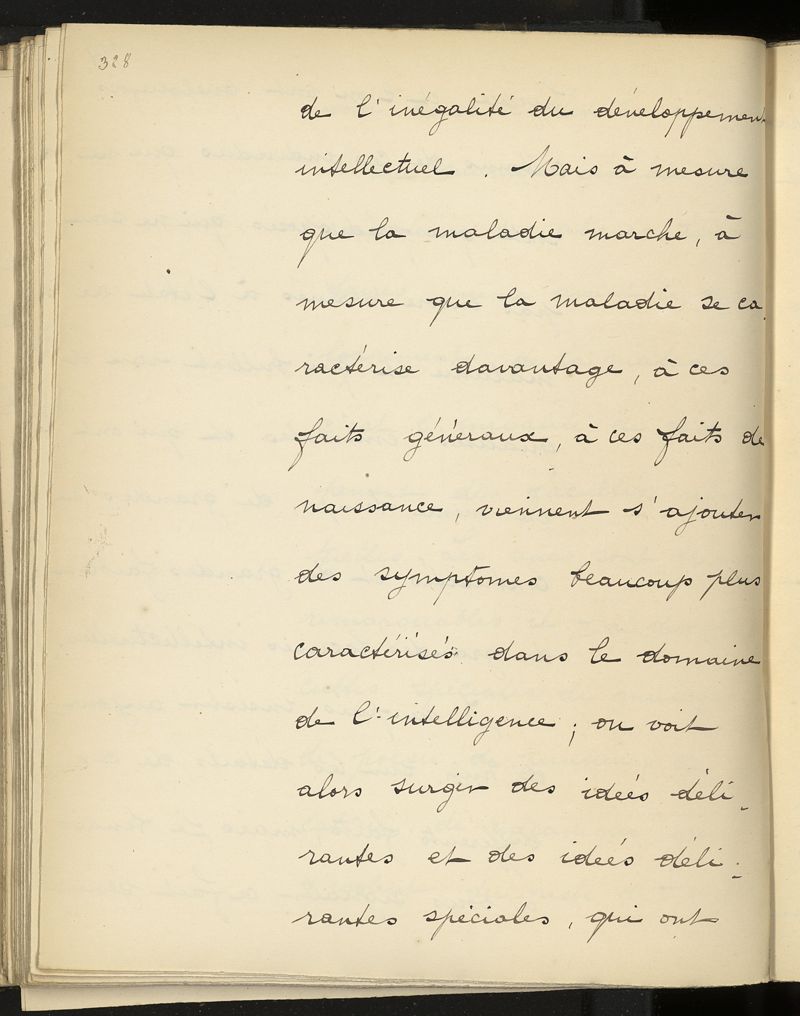 328
de l'inégalité du développement
intellectuel. Mais à mesure
que la maladie marche, à
mesure que la maladie se ca-
ractérise davantage, à ces
faits généraux, à ces faits de
naissance, viennent s'ajouter
des symptomes beaucoup plus
caractérisés dans le domaine
de l'intelligence; on voit
alors surgir des idées déli-
rantes et des idées déli-
rantes spéciales, qui ont